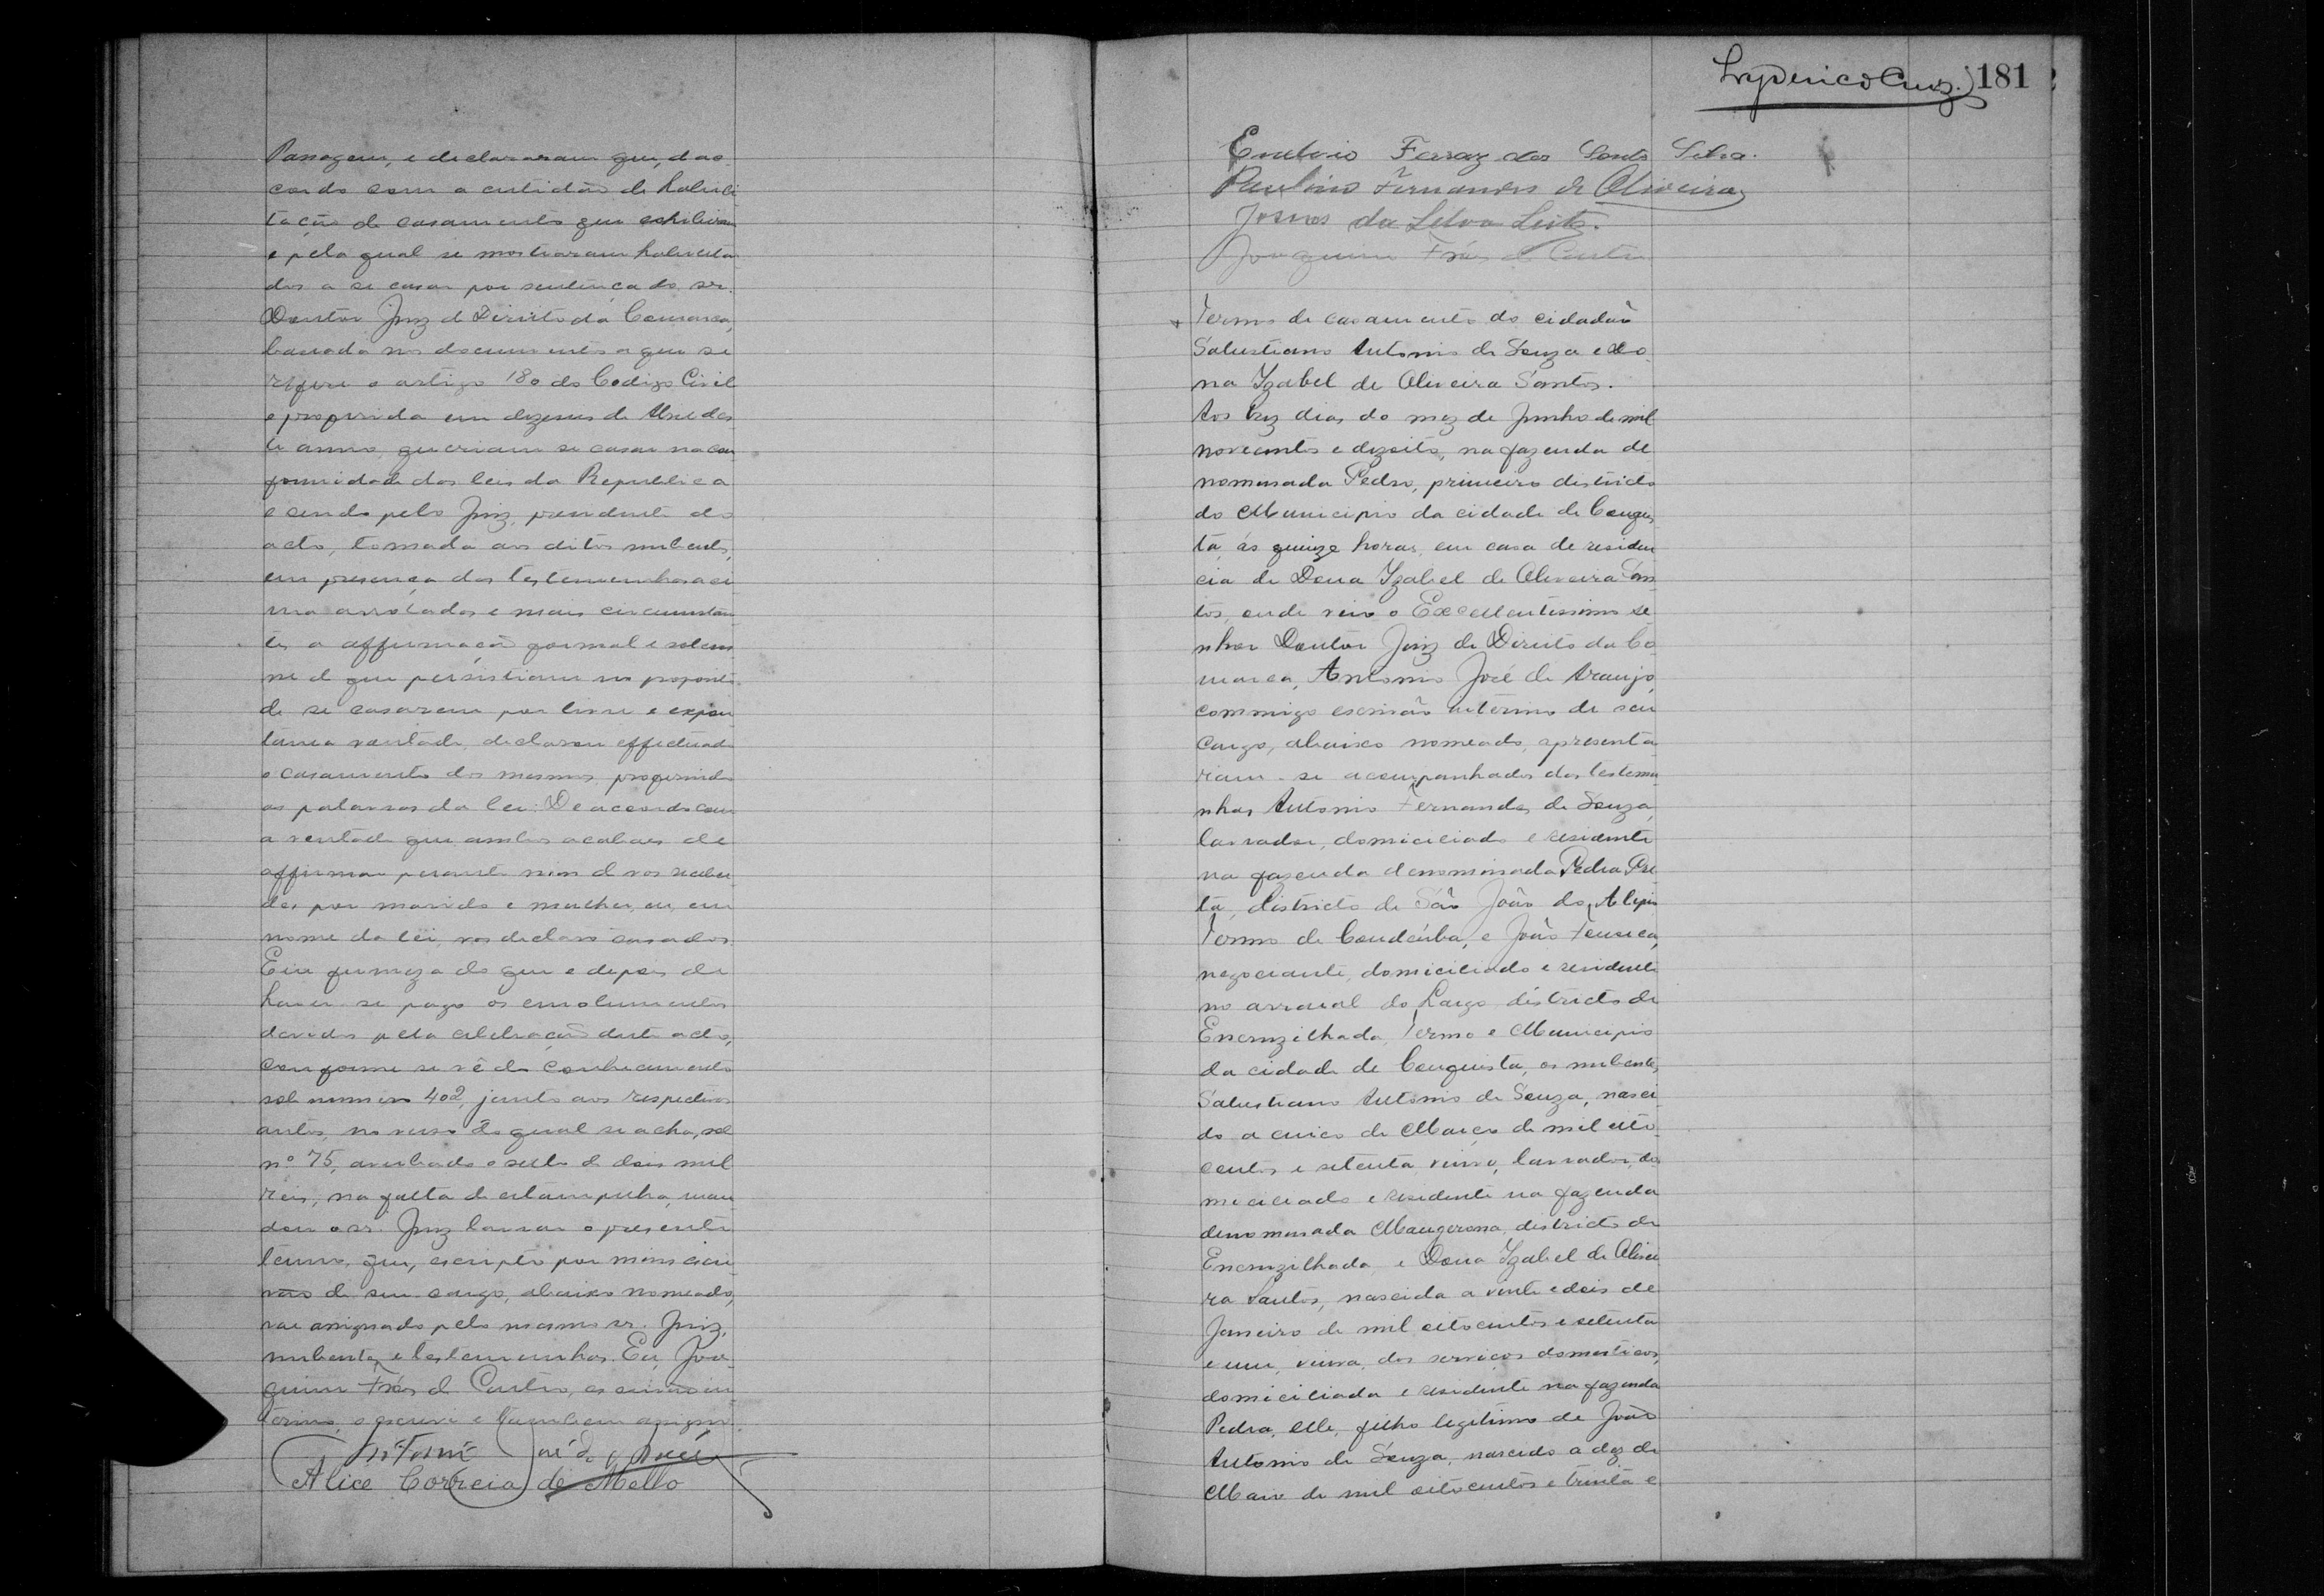 Passagem, e declararam que, d'ac-
cordo com a certidão de habili-
tação de casamento que exhibiram
e pela qual se mostraram habilita-
dos a se casar por sentença do sr.
Doutor Juiz de Direito da Comarca,
baseada nos documentos a que se
refere o artigo 180 do Codigo Civil
e proferida em dezeseis de Abril des-
te anno, queriam se casar na con-
formidade das leis da Republica
e sendo pelo Juiz, presidente do
acto, tomada aos ditos nubentes,
em presença das testemunhas aci-
ma arroladas e mais circumstan-
tes a affirmação formal e solem-
ne de que persistiam no proposito
de se casarem por livre e expon-
tanea vontade, declarou effectuado
o casamento dos mesmos, proferindo
as palavras da lei: De accordo com
a vontade que ambos acabaes de
affirmar perante mim de vos receber-
des por marido e mulher, eu, em
nome da lei, vos declaro casados.
Em firmeza do que e depois de
haver-se pago os emolumentos
devidos pela celebração deste acto,
conforme se vê do conhecimento
sob numero 402, junto aos respectivos
autos, no verso do qual se acha, sob
nº 75, averbado o sello de dois mil
reis, na falta de estampilha, man-
dou o sr. Juiz lavrar o presente
termo, que, escripto por mim escri-
vão de seu cargo, abaixo nomeado,
vae assignado pelo mesmo sr. Juiz,
nubentes e testemunhas. Eu, Joa-
quim Fróes de Castro, escrivão in-
terino, o escrevi e tambem assigno.
Antonio José de Araujo
Alice Correia de Mello
Lyderico Cruz. 181
Ferraz dos Santos Silva.
Paulino Fernandes de Oliveira
da Silva Leite.
Joaquim Fróes de Castro
Termo de casamento do cidadão
Salustiano Antonio de Souza e Do-
na Izabel de Oliveira Santos.
Aos trez dias do mez de Junho de mil
novecentos e dezoito, na fazenda de
nominada Pedra, primeiro districto
do Municipio da cidade de Conquis
ta, ás quinze horas, em casa de residen
cia de Dona Izabel de Oliveira San
tos, onde veio o Excellentissimo Se
nhor Doutor Juiz de Direito da Co-
marca, Antonio José de Araujo,
commigo escrivão interino de seu
cargo, abaixo nomeado, apresenta
ram-se acompanhados das testemu
nhas Antonio Fernandes de Souza,
lavrador, domiciliado e residente
na fazenda denominada Pedra Pre
ta, districto de São João do Alipio
Termo de Condeúba, e João Fonseca,
negociante, domiciliado e residente
no arraial do Largo districto de
Encruzilhada, Termo e Municipio
da cidade de Conquista, os nubentes,
Salustiano Antonio de Souza, nasci-
do a cinco de Março de mil oito-
centos e setenta, viuvo, lavrador, do
miciliado e residente na fazenda
denominada Mangerona, districto de
Encruzilhada e Dona Izabel de Olivei
ra Santos, nascida a vinte e dois de
Janeiro de mil oitocentos e setenta
e um, viuva, dos serviços domesticos,
domiciliada e residente na fazenda
Pedra, elle, filho legitimo de João
Antonio de Souza, nascido a dez de
Maio de mil oitocentos e trinta e